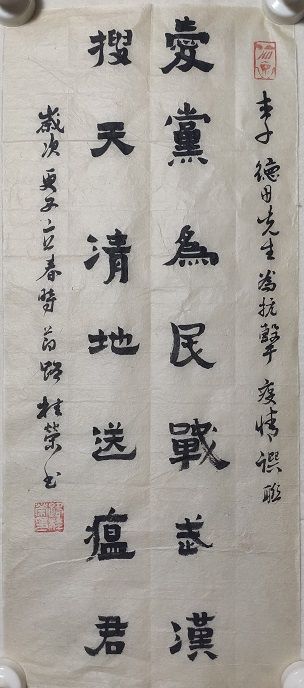 李德田先生為抗擊疫情譔聯
愛黨為民戰武漢
搜天清地送瘟君
歲次庚子立春時節路桂榮书